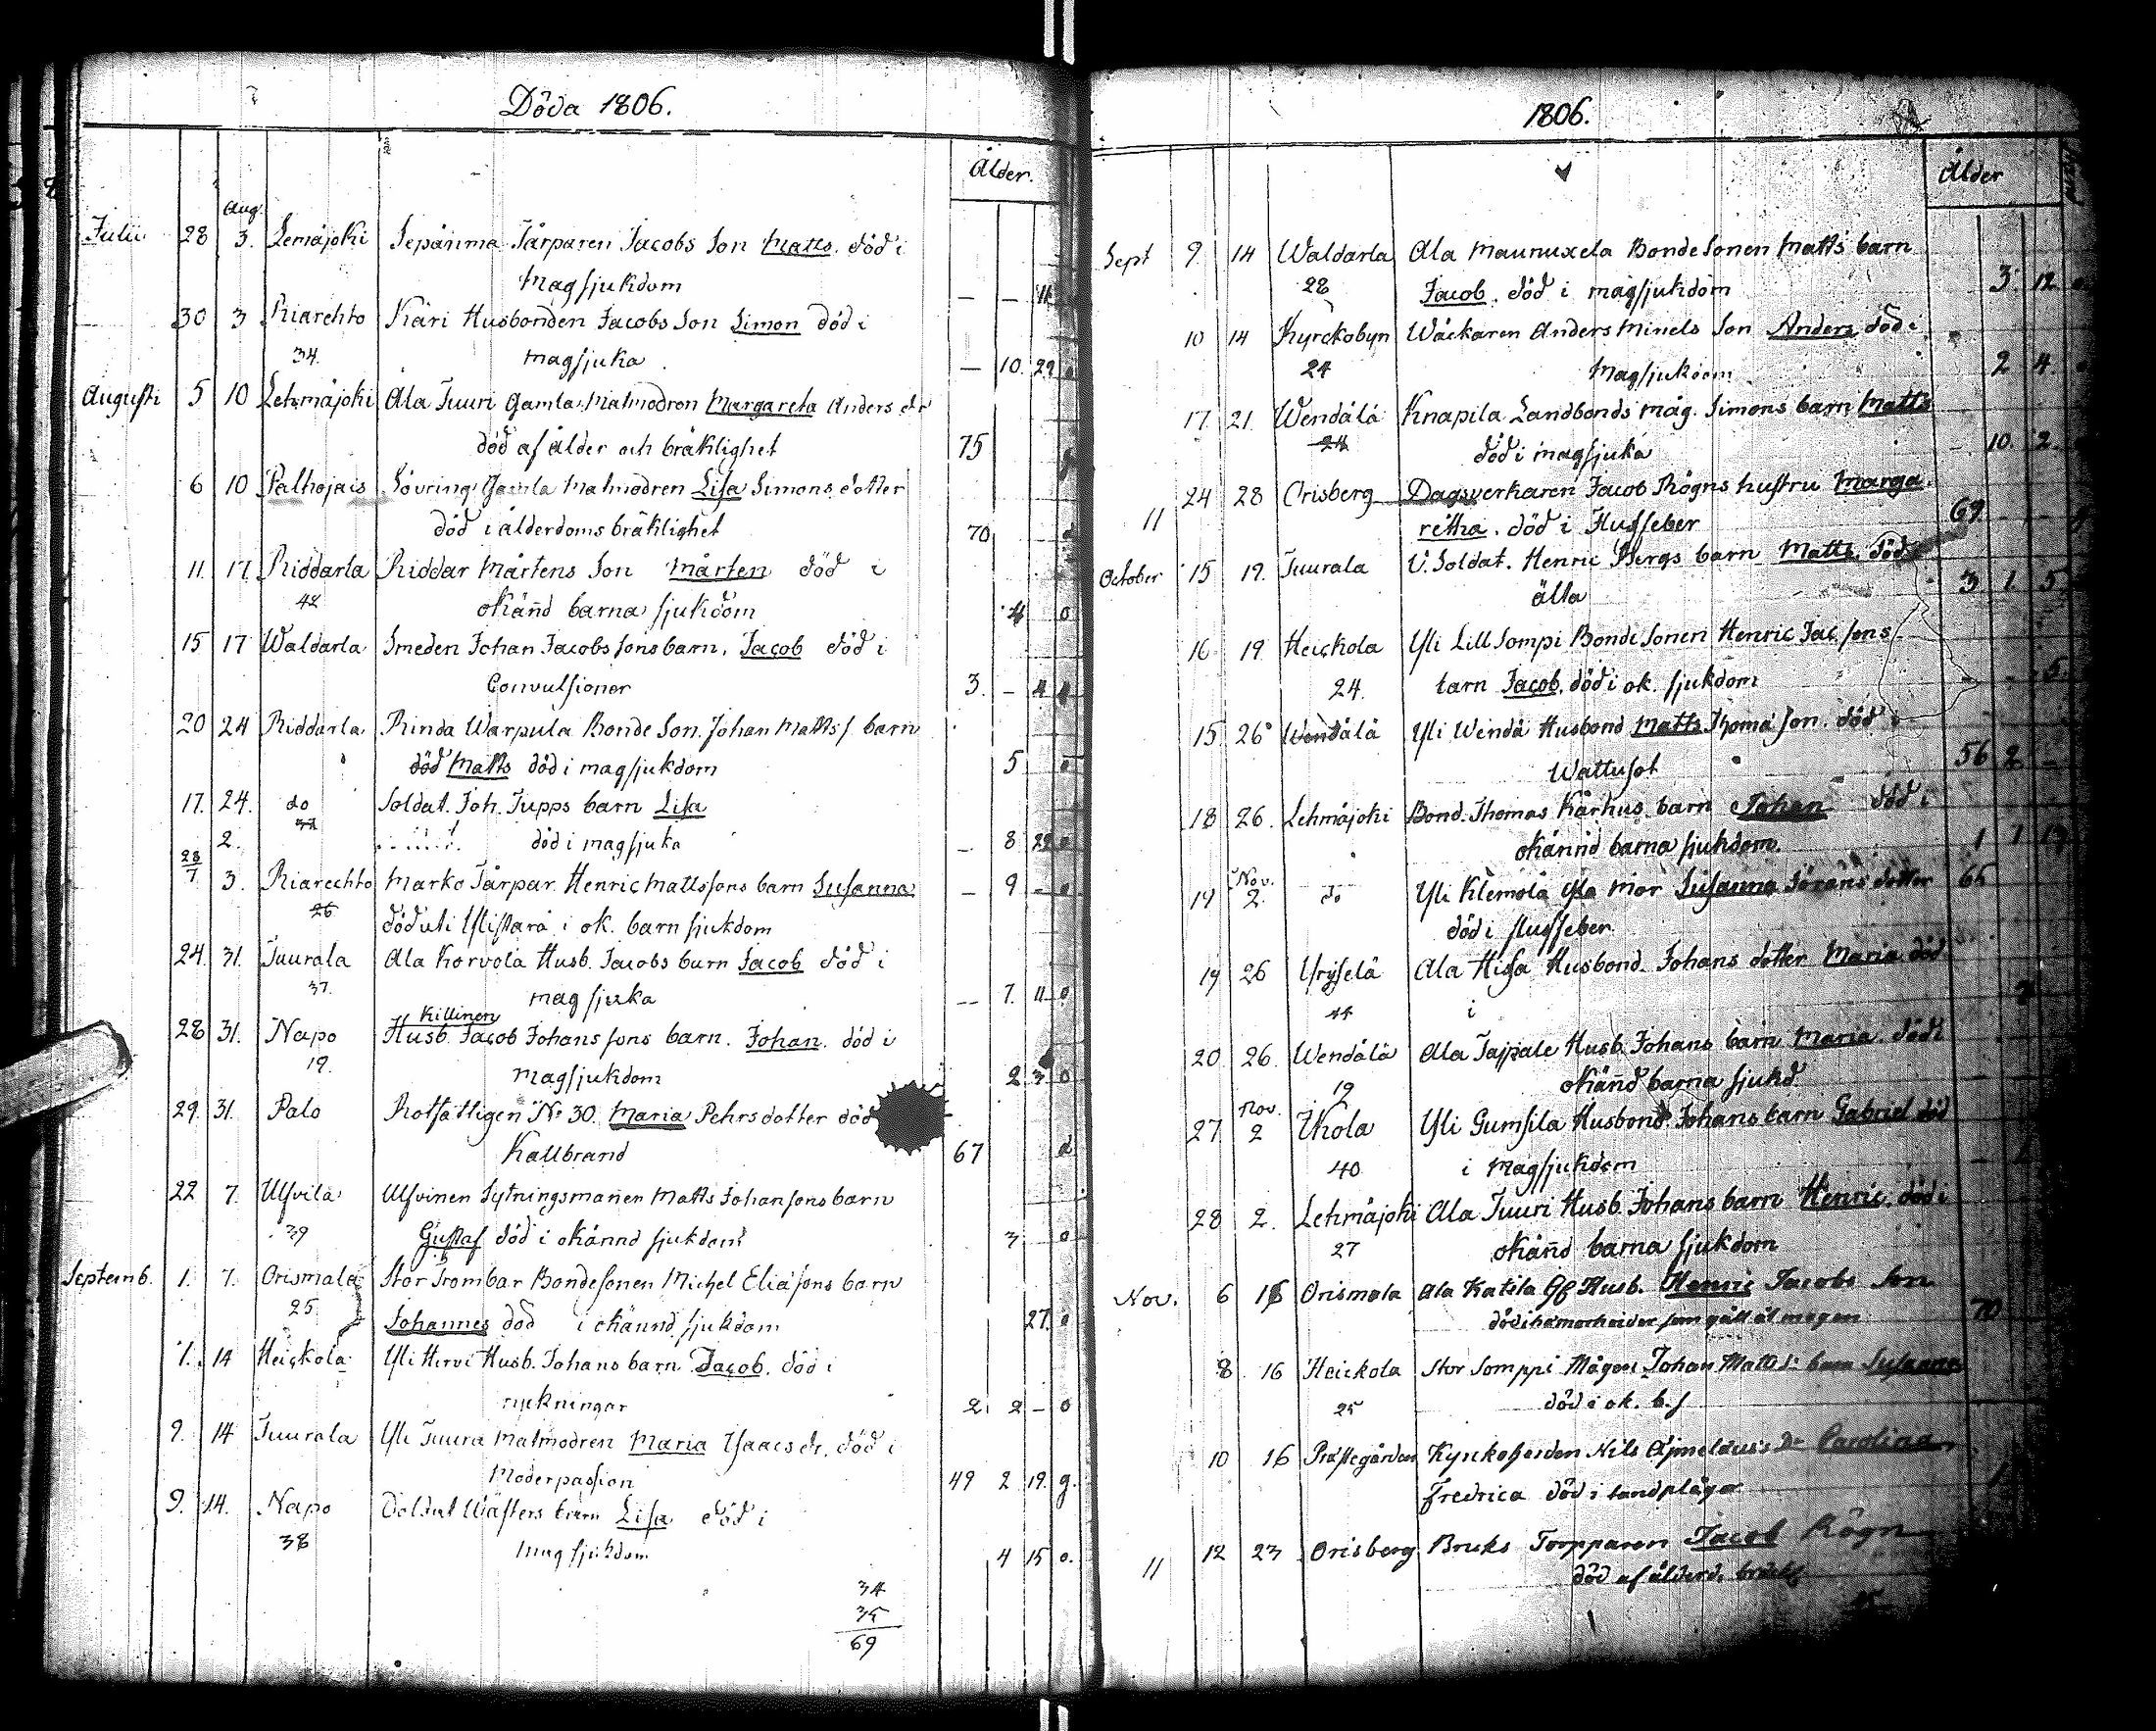 Döda 1806.
Ålder.
Aug.
Julii 28 3. Lemäjoki Sepänma Tårparen Jacobs Son Matts. död i
Magsjukdom — — 11
30 3 Kiarehto Kåri Husbonden Jacobs Son Simon död i
34. magsjuka — 10. 29
Augusti 5 10 Lehmäjoki Ala Juuri Gamla Matmodren Margareta Anders dr
död af ålder och bräklighet 75
6 10 Palhojais Sövring Gamla Matmodren Lisa Simons dotter
död i ålderdoms bräklighet 70
11. 17. Riddarla Riddar Mårtens Son Mårten död i
42 okänd barna sjukdom 4 0
15 17 Waldarla Smeden Johan Jacobs sons barn, Jacob död i
Convulsioner 3. — 4
20 24 Riddarla Rinda Warpula Bonde Son. Johan Matts s. barn
död Matts död i magsjukdom 5 0
17. 24. do Soldat. Joh. Jupps barn Lisa
2. död i magsjuka — 8 22 0
28/7 3. Kiarehto Marko Tårpar. Henric Mattssons barn Susanna — 9 — 0
26 död uti Ylistaro i ok. barn sjukdom
24. 31. Juurala Ala Korvola Husb. Jacobs barn Jacob död i
37. mag sjuka — 7. 11 0
Killinen
28 31. Napo Husb. Jacob Johans sons barn. Johan. död i
19. magsjukdom 2 3 0
29. 31. Palo Rotfattigen No 30. Maria Pehrsdotter död
Kallbrand 67
22 7. Ulfvila Ulfvinen Sytningsmañen Matts Johansons barn
39 Gustaf död i okännd sjukdom 3 0
Septemb. 1. 7. Orismala Stor Trombar Bondesonen Michel Eliæsons barn
25. Johannes död i okännd sjukdom 27. 0
7. 14 Heickola Yli Hirvi Husb. Johans barn Jacob. död i
ryckningar 2. 2 — 0
9. 14 Juurala Yli Juura Matmodren Maria Isaacs dr. död i
Moderpassion 49 2 19. g.
9. 14. Napo Soldat Wästers barn Lisa död i
38 magsjukdom 4 15 0.
34
35
69
1806.
Ålder
Sept 9. 14 Waldarla Ala Maunuxela Bonde Sonen Matts barn
28 Jacob. död i magsjukdom 3 12
10 14 Kyrckobyn Wäckaren Anders Minels Son Anders död i
24 Magsjukdom 2 4
17. 21. Wendälä Knapila Landbonds måg. Simons barn Matts
24 död i magsjuka 10. 2
24 28 Orisberg Dagsverkaren Jacob Rögns hustru Marga
11 retha. död i Flussfeber 69. — —
October 15 19. Juurala V. Soldat. Henric Bergs barn Matts död
älta 3 1 5
16 19 Heickola Yli Lill Sompi Bonde Soneri Henric Jac. sons
24. barn Jacob, död i ok. sjukdom — — 5.
15 26 Wendälä Yli Wendä Husbond Matts Thomæ son. död i
Wattusot 56 2 —
18 26. Lehmäjoki Bond. Thomas Kårhus barn Johan död i
okännd barna sjukdom. 1 1
Nov.
19 2. do Yli Klemola gla mor Susanna Jörans dotter 65
död i flussfeber.
19 26 Yryselä Ala Hissa Husbond. Johans dotter Maria död
i
20 26. Wendälä Ala Taipale Husb. Johans barn Maria. död i
19 okänd barna sjukd.
nov.
27 2 Ikola Yli Gumsila Husbond. Johans barn Gabriel död
40 i Magsjukdom
28 2. Lehmäjoki Ala Juuri Husb. Johans barn Henric. död i
27 okänd barna sjukdom
Nov. 6 16 Orismala Ala Katila Gf Husb. Henric Jacobs Son
död i hæmorhoider som gått åt magen 70
8 16 Heickola Stor Somppi Mågen Johan Matts s: barn Susanna
25 död i ok. b. s
10 16 Prästegården Kyrckoherden Nils Aejmelæus's Dr Carolina
Fredrica död i tandplåga
12 23 Orisberg Bruks Torpparen Jacob Rögn
11 död af ålderd. bräckl